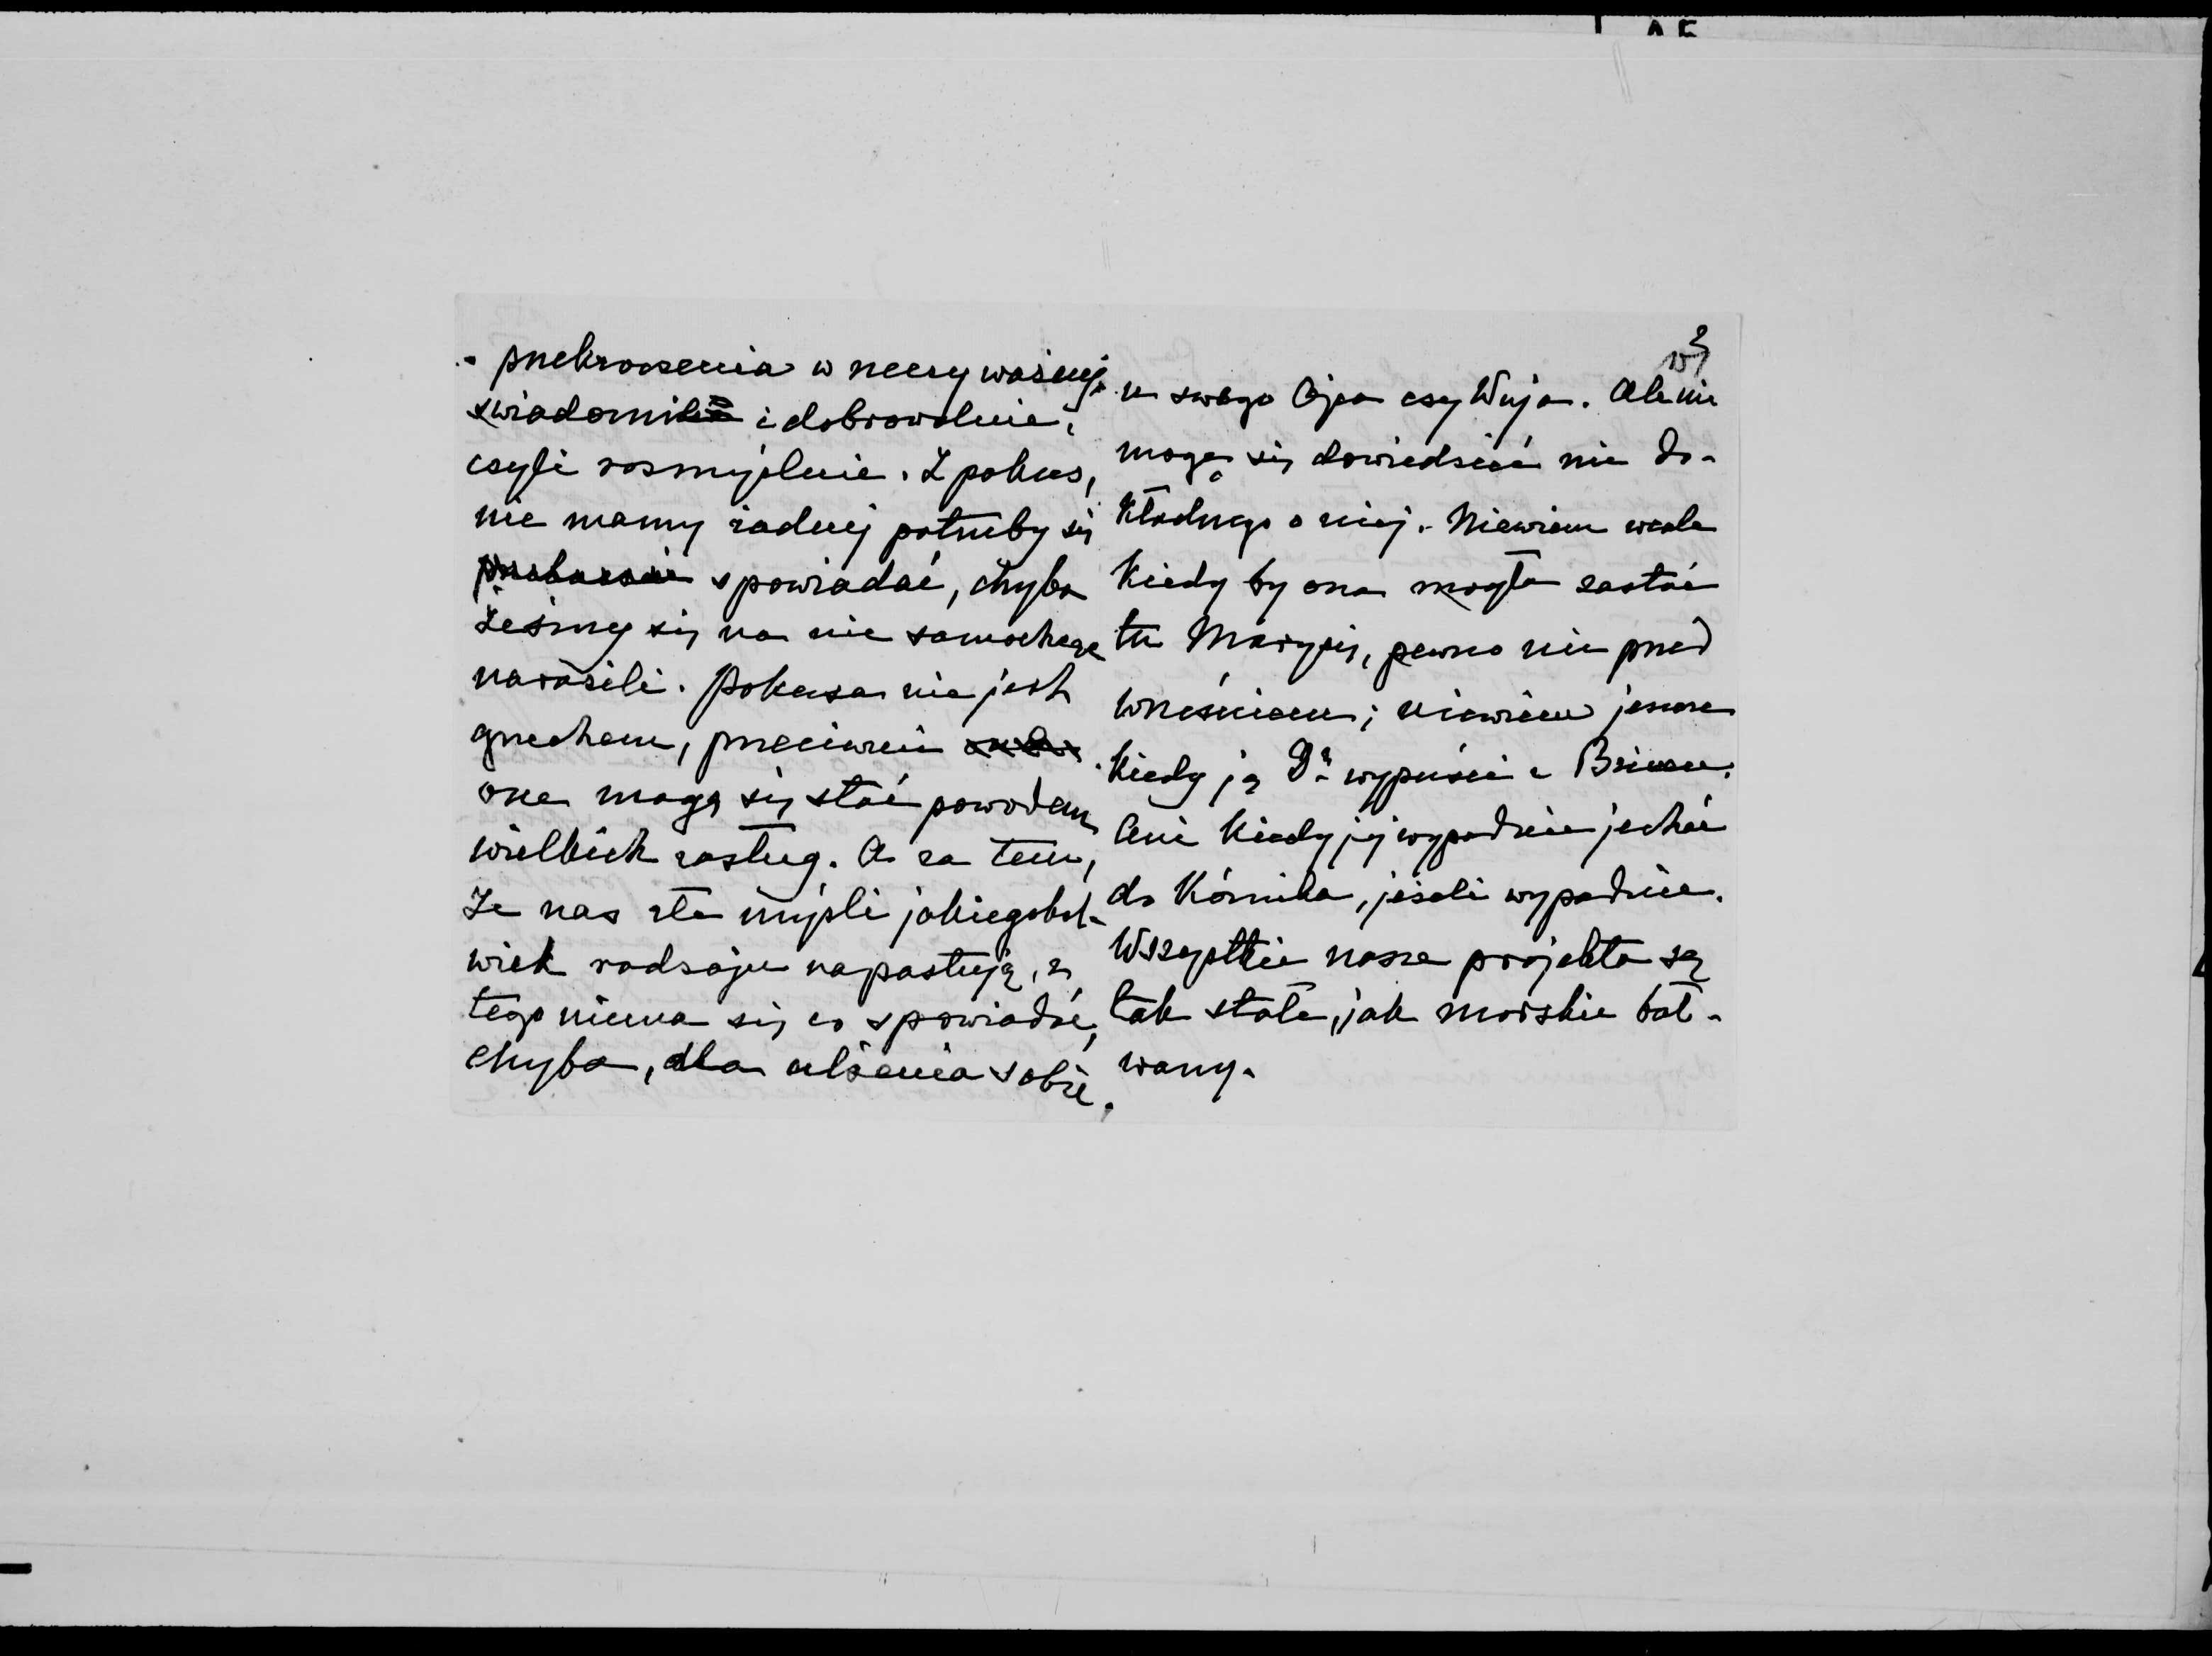 przekroczenia w rzeczy ważnej
świadomie i dobrowolnie,
czyli rozmyślnie. Z pokus,
nie mamy żadnej potrzeby się
spowiadać, chyba
żeśmy się na nie samochcąc
narazili. Pokusa nie jest
grzechem, przeciwnie
one mogą się stać powodem
wielkich zasług. A za tem,
że nas złe myśli jakiegokol-
wiek rodzaju napastują, z
tego niema się co spowiadać,
chyba, dla ulżenia sobie,
u swego Ojca czy Wuja. Ale nie
mogę się dowiedzieć nic do-
kładnego o niej. Niewiem wcale
kiedy by ona mogła zastać
tu Maryję, pewno nie przed
wrześniem; niewiem jeszcze
kiedy ją Dr wypuści z
ani kiedy jej wypadnie jechać
do Kórnika, jeżeli wypadnie.
Wszystkie nasze projekta są
tak stałe, jak morskie bał-
wany.